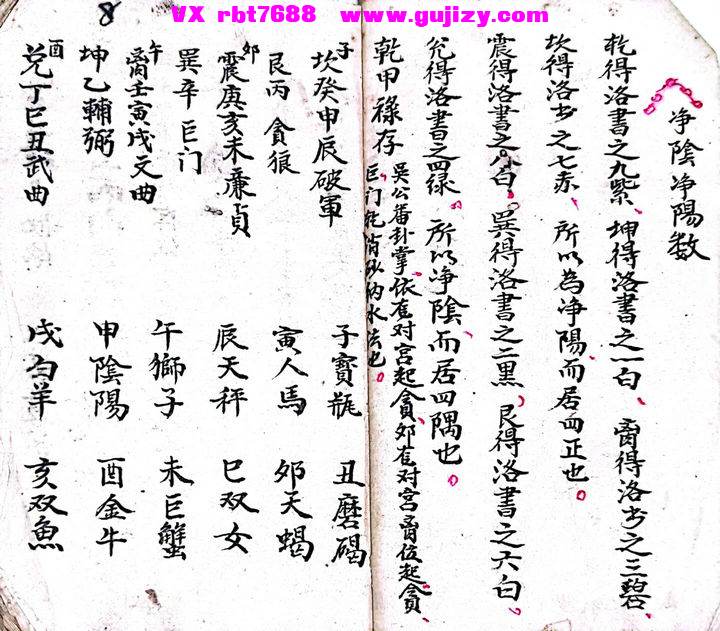 VX rbt7688 www.gujizy.com
8
净陰净陽数
乾得洛書之九紫、坤得洛書之一白、離得洛书之三碧、
坎得洛书之七赤、所以為净陽、而居四正也。
震得洛書之八白、巽得洛書之二黑、艮得洛書之六白。
兑得洛書之四绿。所以净陰、而居四隅也。
吴公番卦掌、依在对宫起貪、卯在对宫离位起貪、
巨门 消砂纳水法也。
乾甲祿存
子
坎癸申辰破軍 子寶瓶 丑磨碣
艮丙 貪狼 寅人馬 卯天蝎
卯
震庚亥未廉貞 辰天秤 巳双女
巽辛巨门 午獅子 未巨蟹
午
离壬寅戌文曲 申陰陽 酉金牛
坤乙輔弼 戌白羊 亥双魚
酉
兑丁巳丑武曲